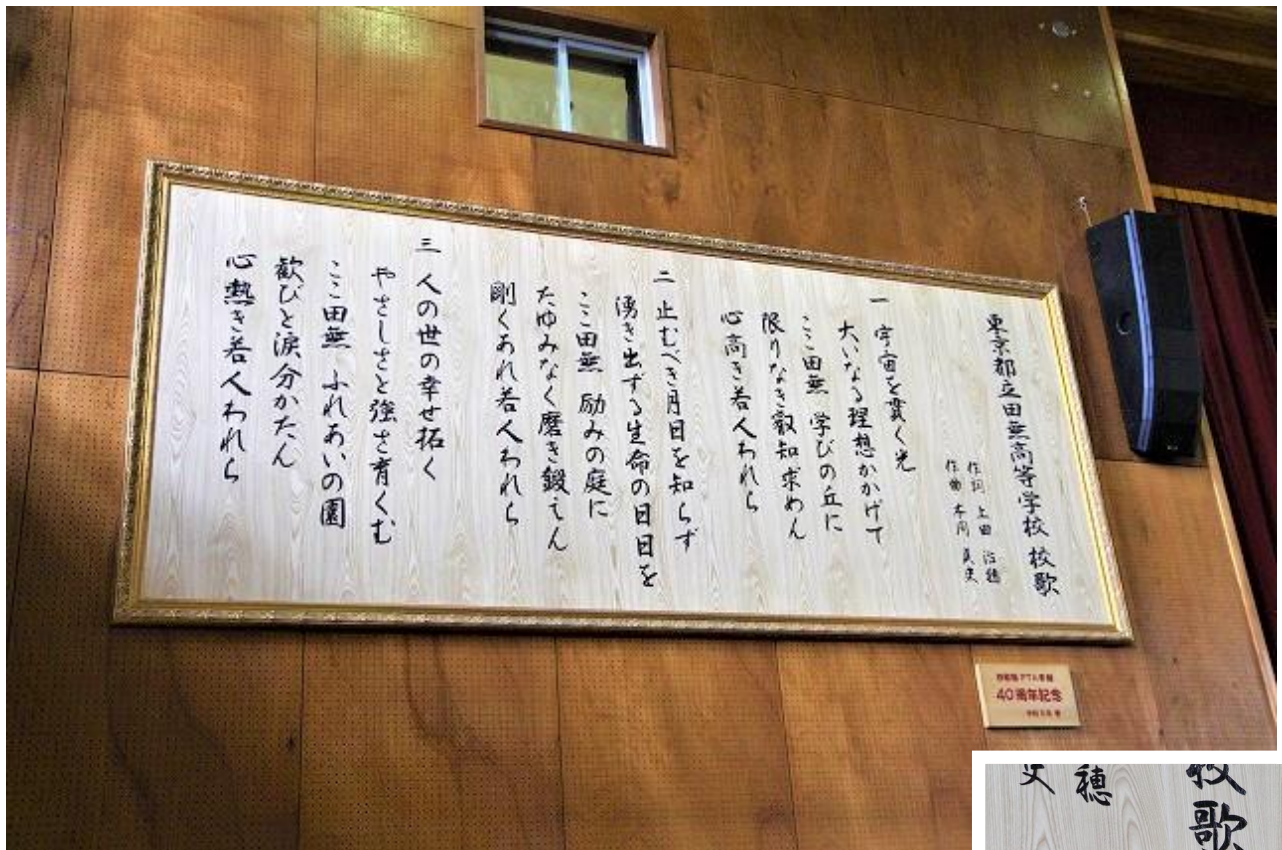 東京都立田無高等学校 校歌
作詞 上田 治穂
作曲 本間 眞史
一 宇宙を貫く光
大いなる理想かかげて
ここ田無 学びの丘に
限りなき叡知求めん
心高き若人われら
二 止むべき月日を知らず
湧き出ずる生命の日日を
ここ田無 励みの庭に
たゆみなく磨き鍛えん
剛くあれ若人われら
三 人の世の幸せ拓く
やさしさと強さ育くむ
ここ田無 ふれあいの園
歓びと涙分かたん
心熱き若人われら
40周年記念
史 穂
校歌